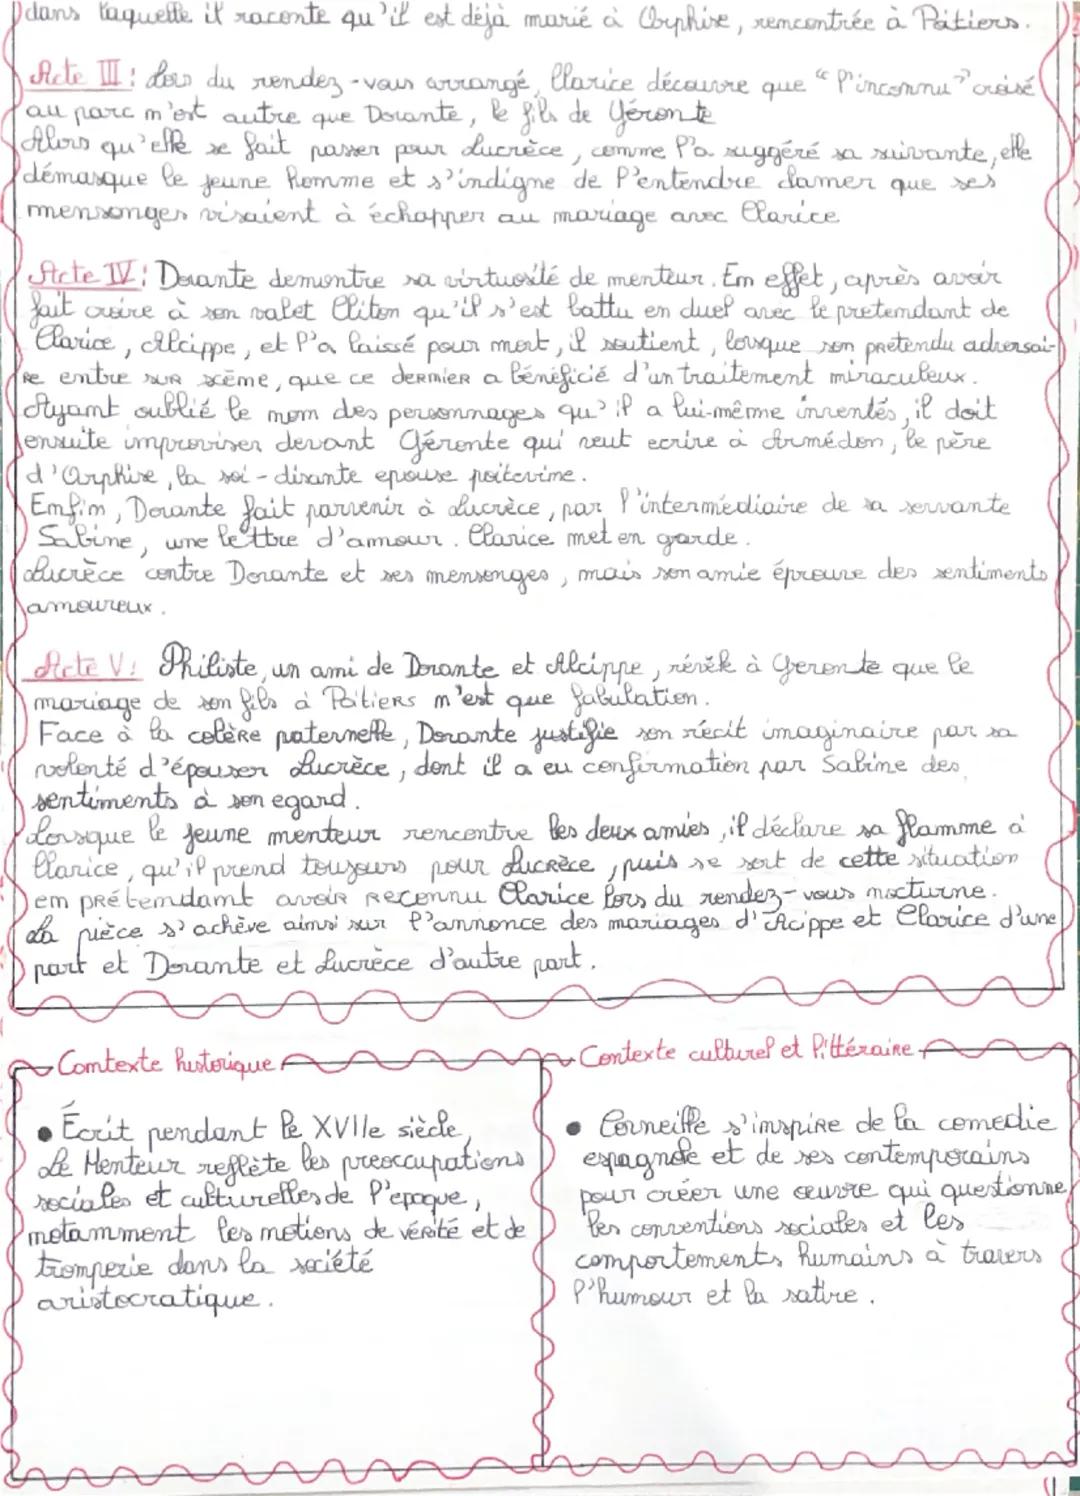 dans laquelle il raconte qu'il est déjà marié à Orphise, rencontrée à Poitiers.
Acte III : Lors du rendez-vous arrangé, Clarice découvre que "l'inconnu" croisé
au parc n'est autre que Dorante, le fils de Géronte
Alors qu'elle se fait passer pour Lucrèce, comme l'a suggéré sa suivante, elle
démasque le jeune homme et s'indigne de l'entendre clamer que ses
mensonges visaient à échapper au mariage avec Clarice
Acte IV : Dorante demontre sa virtuosité de menteur. En effet, après avoir
fait croire à son valet Cliton qu'il s'est battu en duel avec le pretendant de
Clarice, Alcippe, et l'a laissé pour mort, il soutient, lorsque son prétendu adversai-
re entre sur scème, que ce dernier a bénéficié d'un traitement miraculeux.
Ayant oublié le nom des personnages qu'il a lui-même inventés, il doit
ensuite improviser devant Géronte qui veut ecrire à Armédon, le père
d'Orphise, la soi-disante epouse poitevine.
Enfin, Dorante fait parvenir à Lucrèce, par l'intermédiaire de sa servante
Sabine, une lettre d'amour. Clarice met en garde.
Lucrèce contre Dorante et ses mensonges, mais son amie éprouve des sentiments
amoureux.
Acte V : Philiste, un ami de Dorante et Alcippe, révèle à Geronte que le
mariage de son fils à Poitiers n'est que fabulation.
Face à la colère paternelle, Dorante justifie son récit imaginaire par sa
volonté d'épouser Lucrèce, dont il a eu confirmation par Sabine des
sentiments à son egard.
Lorsque le jeune menteur rencontre les deux amies, il déclare sa flamme à
Clarice, qu'il prend toujours pour Lucrèce, puis se sort de cette situation
en prétendant avoir reconnu Clarice lors du rendez-vous nocturne.
La pièce s'achève ainsi sur l'annonce des mariages d'Acippe et Clarice d'une
part et Dorante et Lucrèce d'autre part.
Contexte historique
• Écrit pendant le XVIIe siècle,
Le Menteur reflète les preoccupations
sociales et culturelles de l'epoque,
notamment les notions de vérité et de
tromperie dans la société
aristocratique.
Contexte culturel et littéraire
• Corneille s'inspire de la comedie
espagnole et de ses contemporains
pour créer une œuvre qui questionne
les conventions sociales et les
comportements humains à travers
l'humour et la satire.